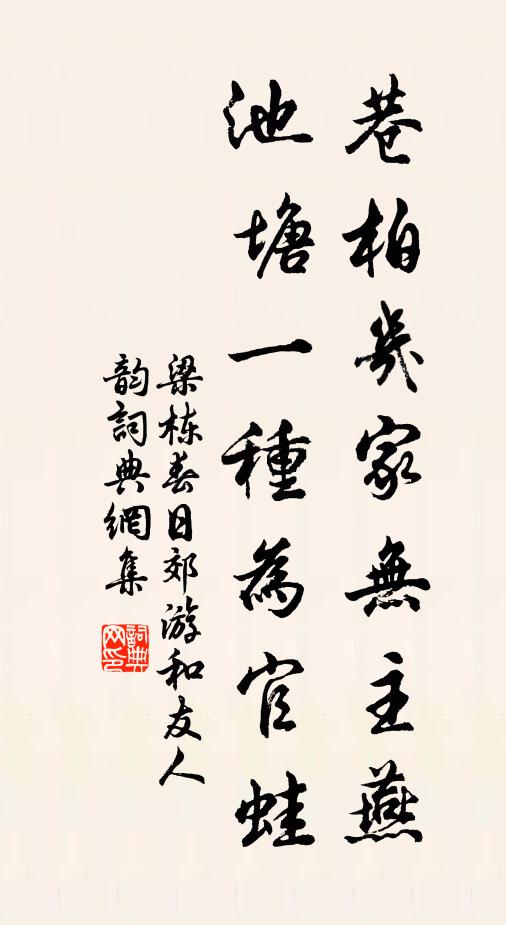 巷柏幾家無主燕
池塘一種為官蛙
梁栋春日郊游和友人
韵詞典網集
詞典
网印